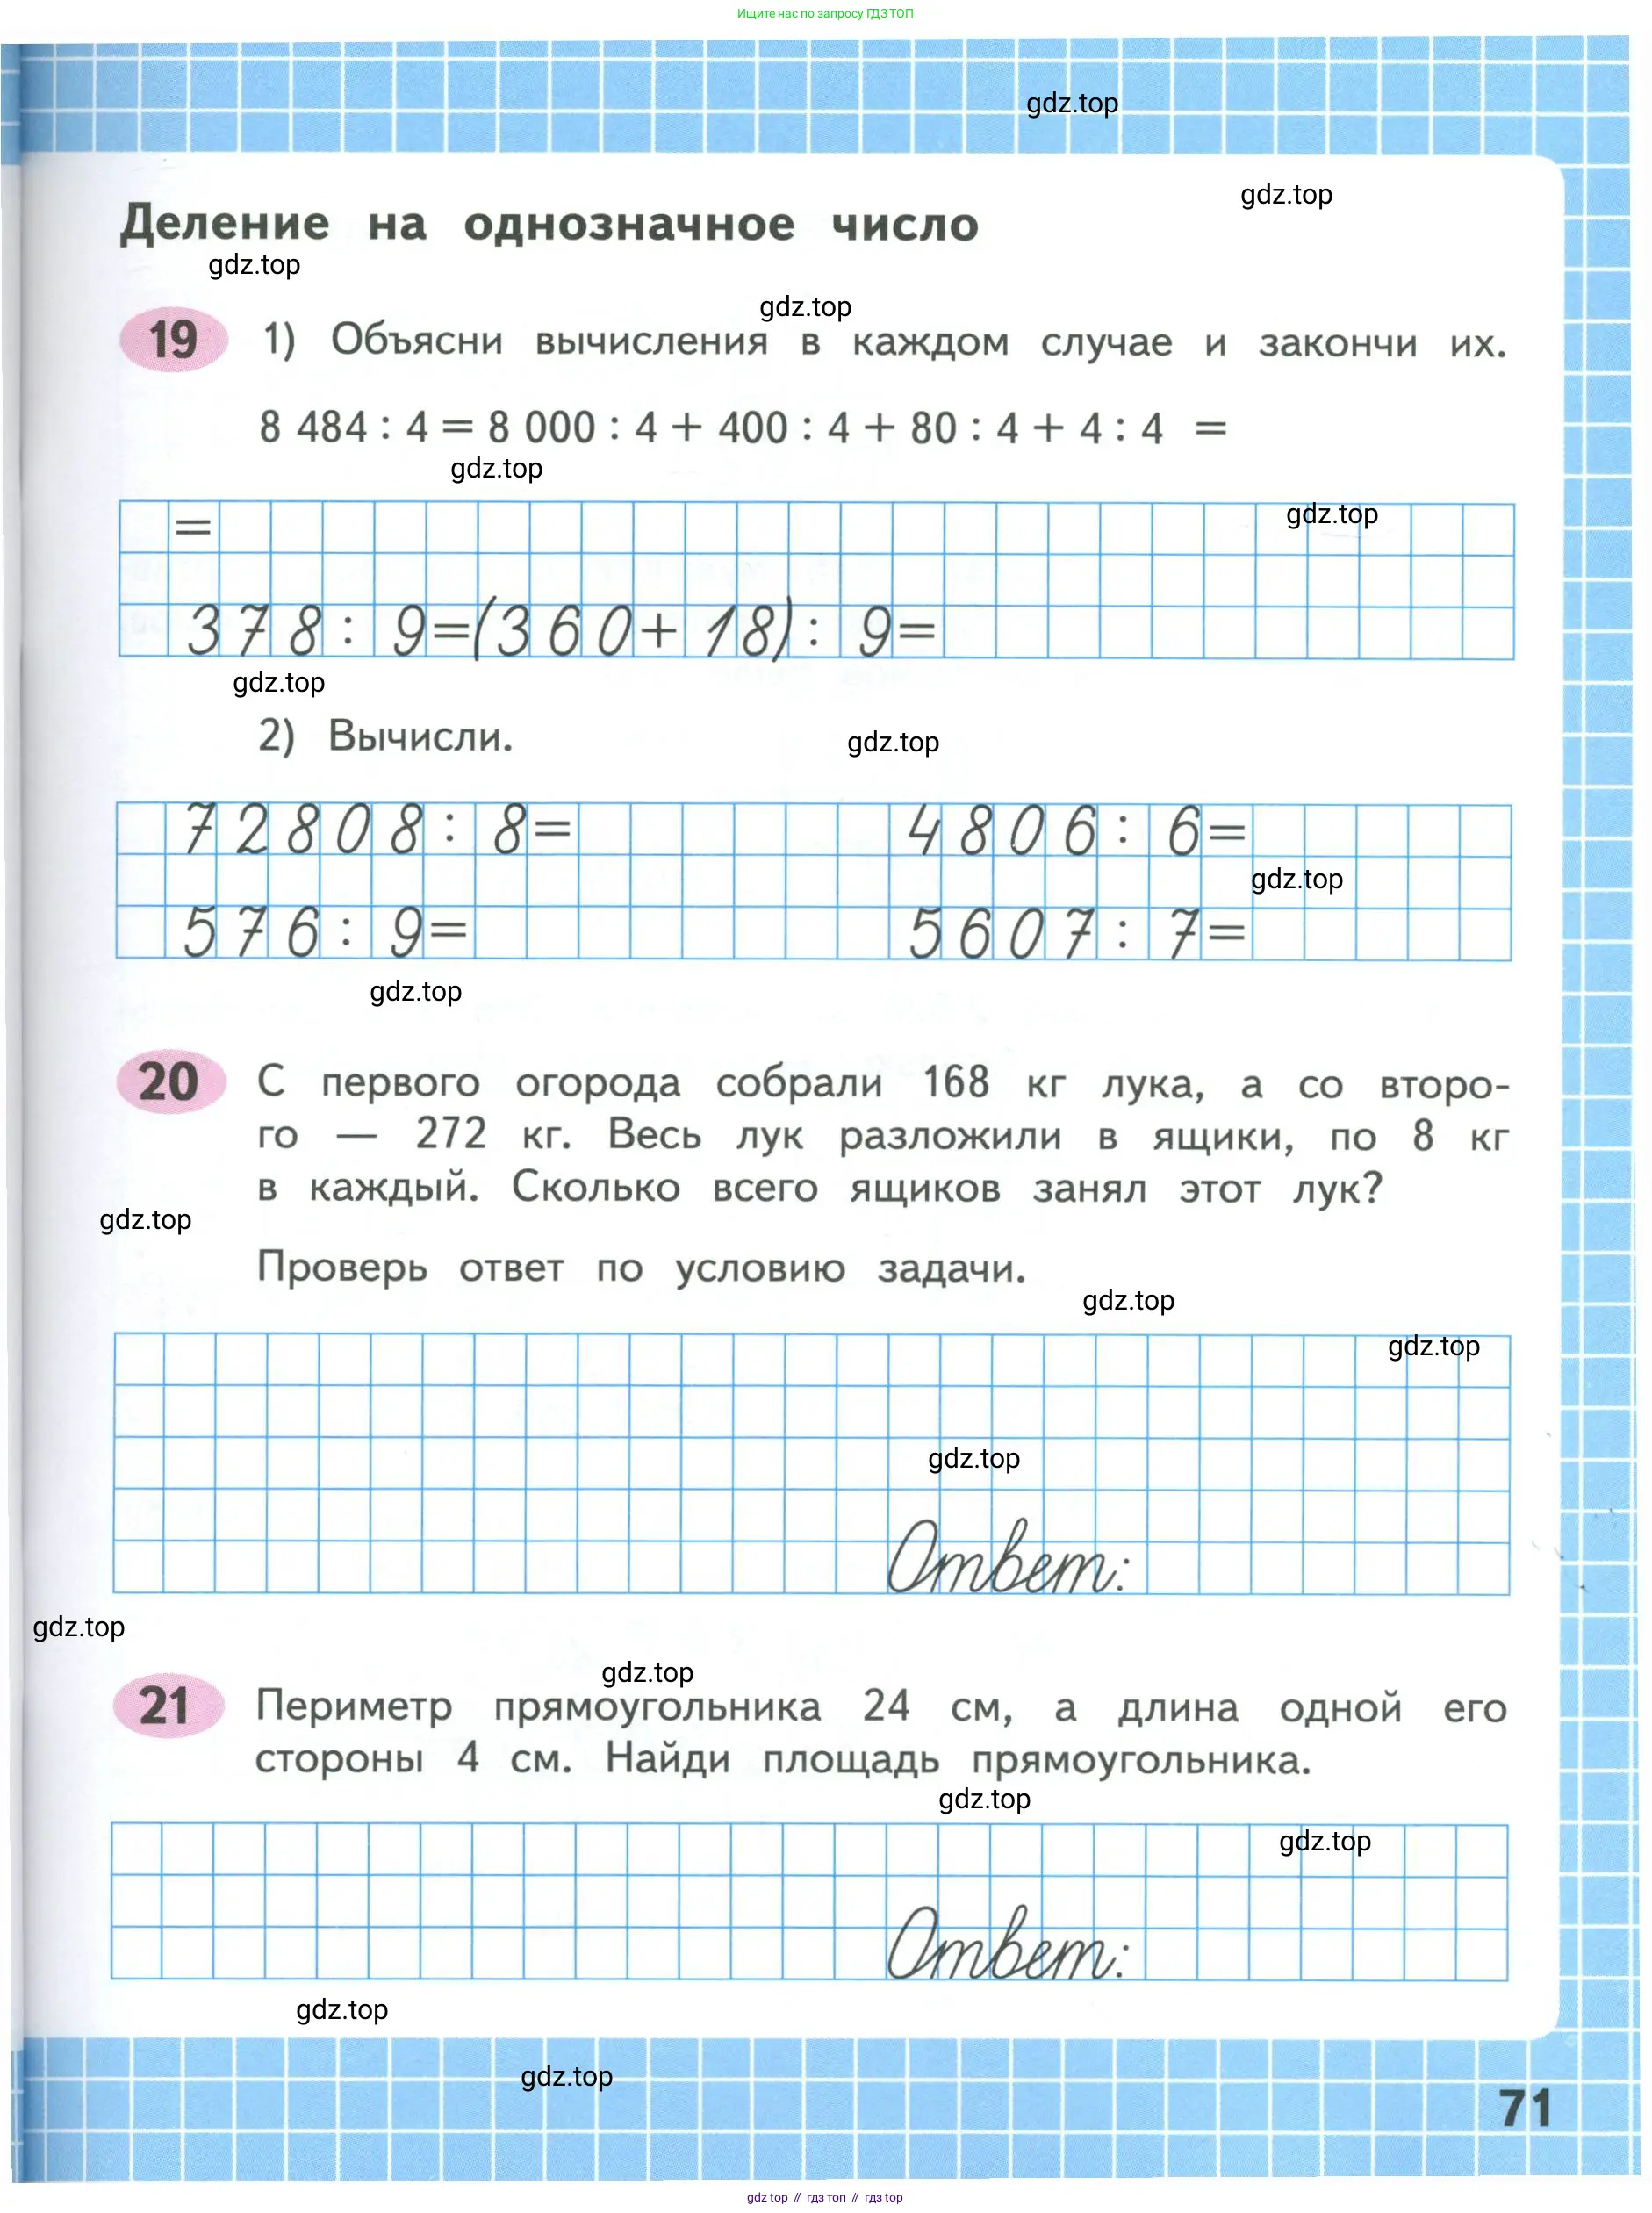 Ищите нас по запросу ГДЗ ТОП
gdz.top
gdz.top
Деление на однозначное число
gdz.top
gdz.top
19 1) Объясни вычисления в каждом случае и закончи их.
8 484 : 4 = 8 000 : 4 + 400 : 4 + 80 : 4 + 4 : 4 =
gdz.top
gdz.top
=
378 : 9=(360+18) : 9=
gdz.top
2) Вычисли.
gdz.top
72808 : 8= 4806 : 6=
gdz.top
576 : 9= 5607 : 7=
gdz.top
20 С первого огорода собрали 168 кг лука, а со второ-
го — 272 кг. Весь лук разложили в ящики, по 8 кг
в каждый. Сколько всего ящиков занял этот лук?
gdz.top
Проверь ответ по условию задачи.
gdz.top
gdz.top
gdz.top
Ответ:
gdz.top
gdz.top
21 Периметр прямоугольника 24 см, а длина одной его
стороны 4 см. Найди площадь прямоугольника.
gdz.top
gdz.top
Ответ:
gdz.top
gdz.top
71
gdz top // гдз топ // гдз top